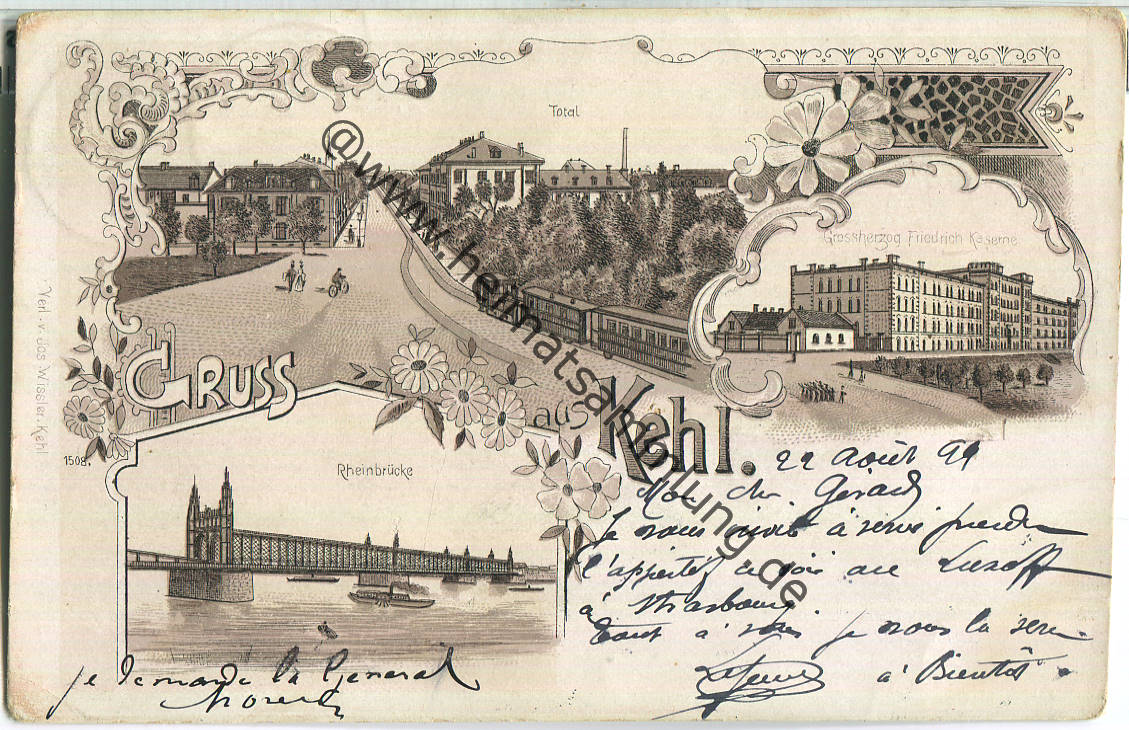 Total
Grossherzog Friedrich Kaserne
GRUSS
aus
Kehl.
Rheinbrücke
Verl. v. Jos. Wissler. Kehl
1508.
@www.heimatsammlung.de
22 Août 99
Mon cher Gérard
Je vous invite à venir prendre
l'appéritif ce soir au
à Strasbourg
Tout à vous je vous la serre
à Bientôt
je demande le General